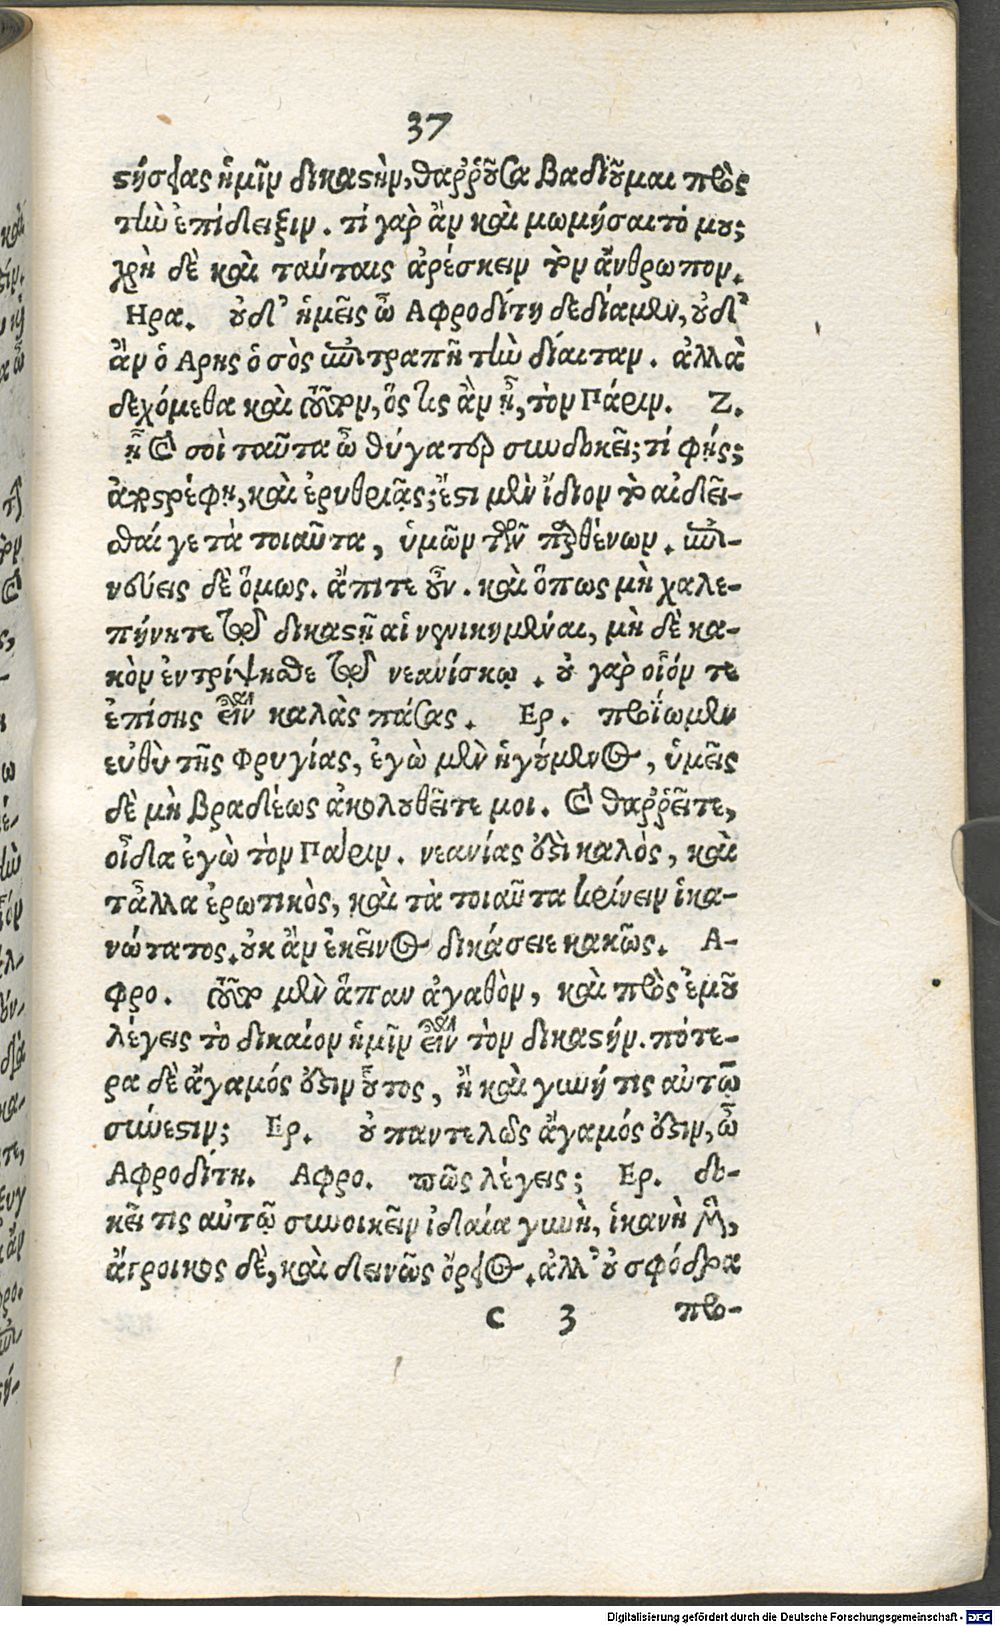 37
στήσειας ἡμῖν δικαστὴν, θαρῥοῦσα βαδιοῦμαι πρὸς
τὴν ἐπίδειξιν. τί γὰρ ἂν καὶ μωμήσαιτό μου;
χρὴ δὲ καὶ ταύταις ἀρέσκειν τὸν ἄνθρωπον.
Ηρα. οὐδ' ἡμεῖς ὦ Αφροδίτη δεδίαμεν, οὐδ'
ἂν ὁ Αρης ὁ σὸς ἐπιτραπῇ τὴν δίαιταν. ἀλλὰ
δεχόμεθα καὶ τοῦτον, ὅς τις ἂν ᾖ, τὸν Πάριν. Ζ.
ἦ καὶ σοὶ ταῦτα ὦ θύγατερ συνδοκεῖ; τί φῄς;
ἀποστρέφῃ, καὶ ἐρυθριᾷς; ἔστι μὲν ἴδιον τὸ αἰδεῖ-
σθαί γε τὰ τοιαῦτα, ὑμῶν τῶν παρθένων. ἐπι-
νεύεις δὲ ὅμως. ἄπιτε οὖν. καὶ ὅπως μὴ χαλε-
πήνητε τῷ δικαστῇ αἱ νενικημέναι, μὴ δὲ κα-
κὸν ἐντρίψησθε τῷ νεανίσκῳ. οὐ γὰρ οἷόν τε
ἐπίσης εἶναι καλὰς πάσας. Ερ. προΐωμεν
εὐθὺ τῆς Φρυγίας, ἐγὼ μὲν ἡγούμενος, ὑμεῖς
δὲ μὴ βραδέως ἀκολουθεῖτε μοι. καὶ θαρῥεῖτε,
οἶδα ἐγὼ τὸν Πάριν. νεανίας ἐστὶ καλὸς, καὶ
τἄλλα ἐρωτικὸς, καὶ τὰ τοιαῦτα κρίνειν ἱκα-
νώτατος. οὐκ ἂν ἐκεῖνος δικάσειε κακῶς. Α-
φρο. τοῦτο μὲν ἅπαν ἀγαθὸν, καὶ πρὸς ἐμοῦ
λέγεις τὸ δικαίον ἡμῖν εἶναι τὸν δικαστήν. πότε-
ρα δὲ ἄγαμός ἐστιν οὗτος, ἢ καὶ γυνή τις αὐτῷ
σύνεστιν; Ερ. οὐ παντελῶς ἄγαμός ἐστιν, ὦ
Αφροδίτη. Αφρο. πῶς λέγεις; Ερ. δο-
κεῖ τις αὐτῷ συνοικεῖν ἰδαία γυνὴ, ἱκανὴ μὲν,
ἄγροικος δὲ, καὶ δεινῶς ὄρειος. ἀλλ' οὐ σφόδρα
C 3 προ-
Digitalisierung gefördert durch die Deutsche Forschungsgemeinschaft - DFG